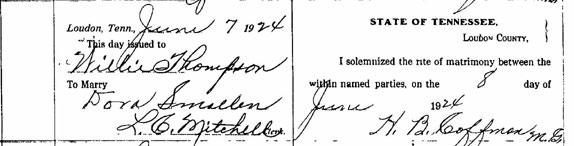 Loudon, Tenn., June 7 1924
This day issued to
Willie Thompson
To Marry
Dora Smallen
L. C. Mitchell Clerk.
STATE OF TENNESSEE,
LOUDON COUNTY,
I solemnized the rite of matrimony between the
within named parties, on the 8 day of
June 1924
H. B. Coffman M.G.